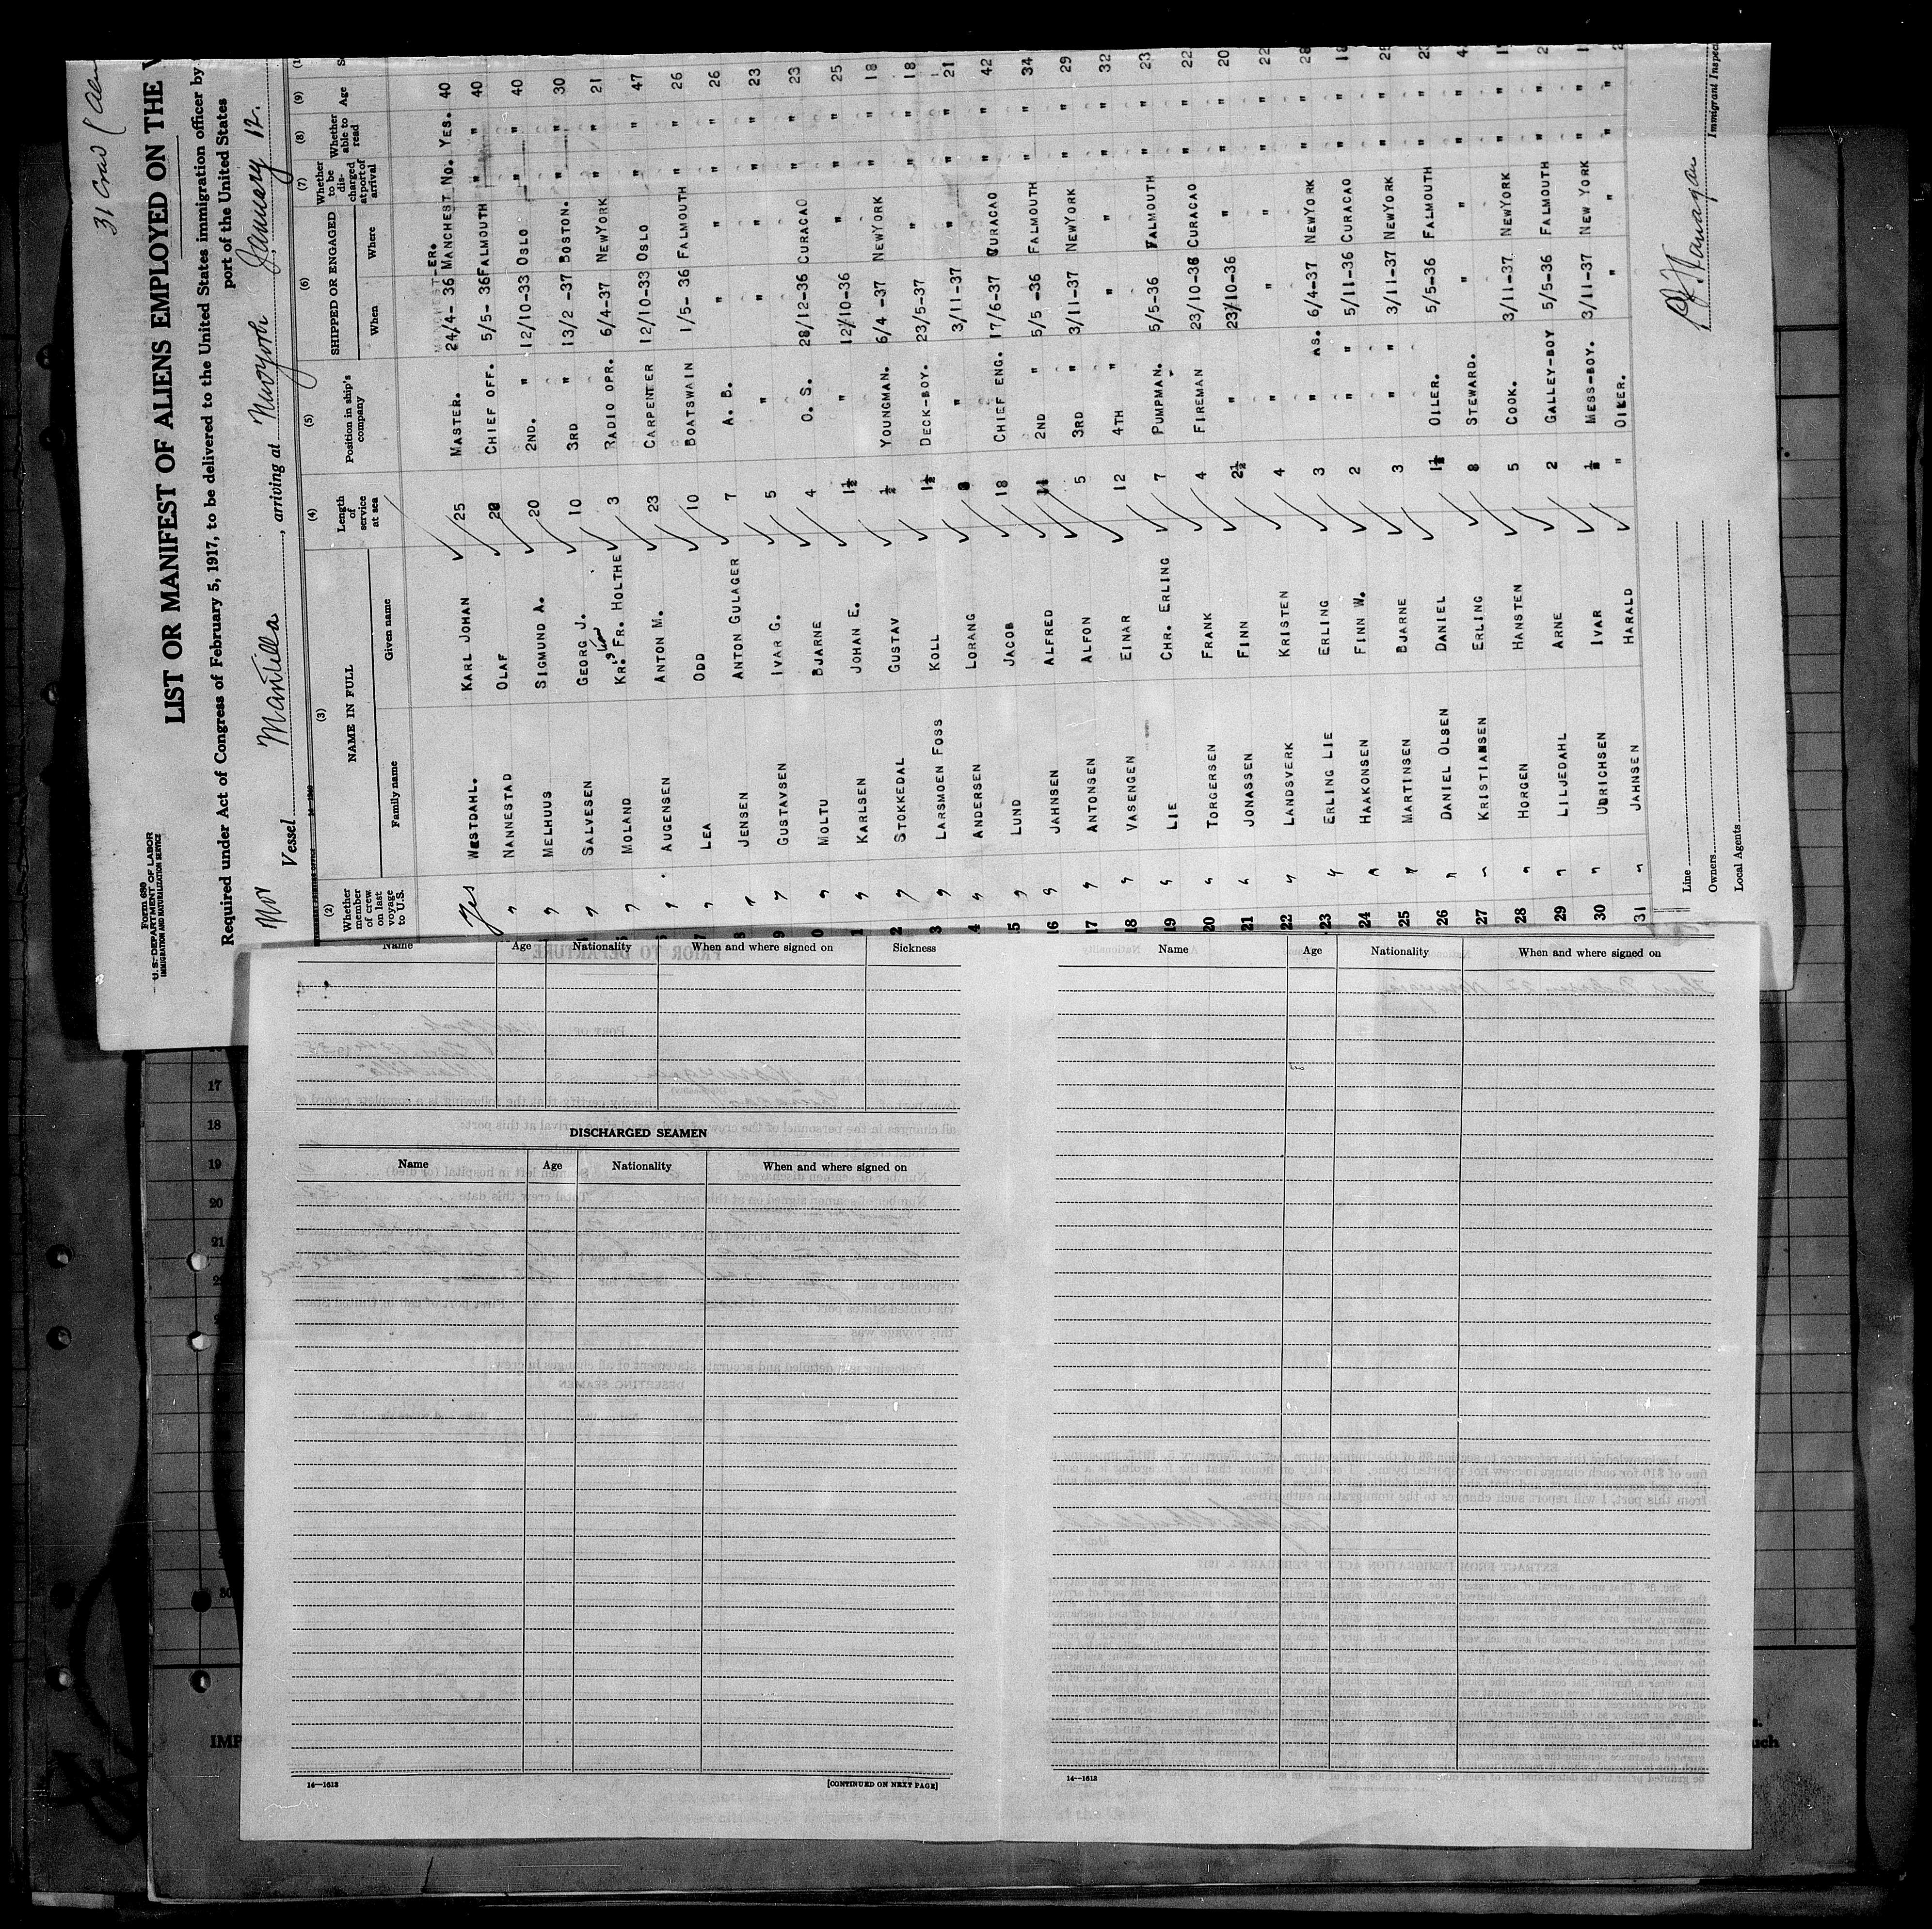 31 Crew
Form 680
U. S. DEPARTMENT OF LABOR
IMMIGRATION AND NATURALIZATION SERVICE
LIST OR MANIFEST OF ALIENS EMPLOYED ON THE
Required under Act of Congress of February 5, 1917, to be delivered to the United States immigration officer by
port of the United States
Nor Vessel Mantilla, arriving at Newyork January 12.
(2) (3) (4) (5) (6) (7) (8) (9)
Whether member of crew on last voyage to U.S. NAME IN FULL Family name Given name Length of service at sea Position in ship's company SHIPPED OR ENGAGED When Where Whether to be discharged at port of arrival Whether able to read Age
Yes WESTDAHL. KARL JOHAN 25 MASTER. 24/4- 36 MANCHEST-ER. NO. YES. 40
" NANNESTAD OLAF CHIEF OFF. 5/5- 36 FALMOUTH " " 40
" MELHUUS SIGMUND A. 20 2ND. " 12/10-33 OSLO " " 40
" SALVESEN GEORG J. 10 3RD " 13/2 -37 BOSTON. " " 30
" MOLAND KR. FR. HOLTHE 3 RADIO OPR. 6/4-37 NEWYORK " " 21
" AUGENSEN ANTON M. 23 CARPENTER 12/10-33 OSLO " " 47
7 " LEA ODD 10 BOATSWAIN 1/5- 36 FALMOUTH " " 26
8 " JENSEN ANTON GULAGER 7 A. B. " " " " 26
9 " GUSTAVSEN IVAR G. 5 " " " " " 23
0 " MOLTU BJARNE 4 O. S. 28/12-36 CURACAO " " 23
1 " KARLSEN JOHAN E. 1½ " 12/10-36 " " " 25
2 " STOKKEDAL GUSTAV ½ YOUNGMAN. 6/4 -37 NEWYORK " " 18
3 " LARSMOEN FOSS KOLL 1½ DECK-BOY. 23/5-37 " " " 18
4 " ANDERSEN LORANG " 3/11-37 " " " 21
5 " LUND JACOB 18 CHIEF ENG. 17/6-37 CURACAO " " 42
16 " JAHNSEN ALFRED 2ND " 5/5 -36 FALMOUTH " " 34
17 " ANTONSEN ALFON 5 3RD " 3/11-37 NEWYORK " " 29
18 " VASENGEN EINAR 12 4TH " " " " " 32
19 " LIE CHR. ERLING 7 PUMPMAN. 5/5-36 FALMOUTH " " 23
20 " TORGERSEN FRANK 4 FIREMAN 23/10-36 CURACAO " " 22
21 " JONASSEN FINN 2½ " 23/10-36 " " " 20
22 " LANDSVERK KRISTEN 4 " " " " " 22
23 " ERLING LIE ERLING 3 " AS. 6/4-37 NEWYORK " " 28
24 " HAAKONSEN FINN W. 2 " " 5/11-36 CURACAO " "
25 " MARTINSEN BJARNE 3 " " 3/11-37 NEWYORK " "
26 " DANIEL OLSEN DANIEL 1½ OILER. 5/5-36 FALMOUTH " "
27 " KRISTIANSEN ERLING 8 STEWARD. " " " "
28 " HORGEN HANSTEN 5 COOK. 3/11-37. NEWYORK " "
29 " LILJEDAHL ARNE 2 GALLEY-BOY 5/5-36 FALMOUTH " "
30 " ULRICHSEN IVAR ½ MESS-BOY. 3/11-37 NEW YORK " "
31 " JAHNSEN HARALD " OILER. " " " "
Line
Owners
Local Agents
Immigrant Inspec
Name Age Nationality When and where signed on Sickness
DISCHARGED SEAMEN
Name Age Nationality When and where signed on
14—1613 [CONTINUED ON NEXT PAGE]
Name Age Nationality When and where signed on
14—1613
17
18
19
20
21
30
IMP
uch